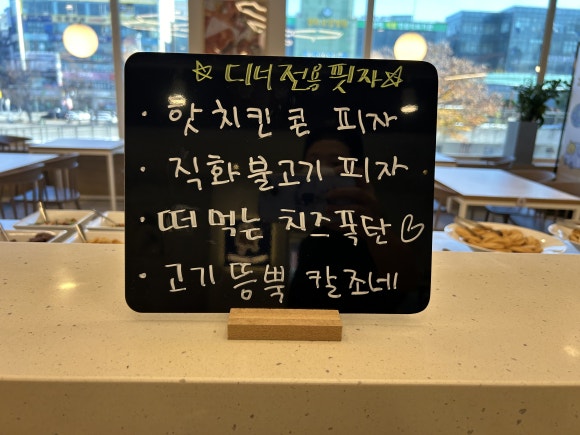 ☆ 디너전용핏자 ☆
· 앗 치킨 콘 피자
· 직화불고기 피자
· 떠먹는 치즈폭탄♡
· 고기 듬뿍 칼조네